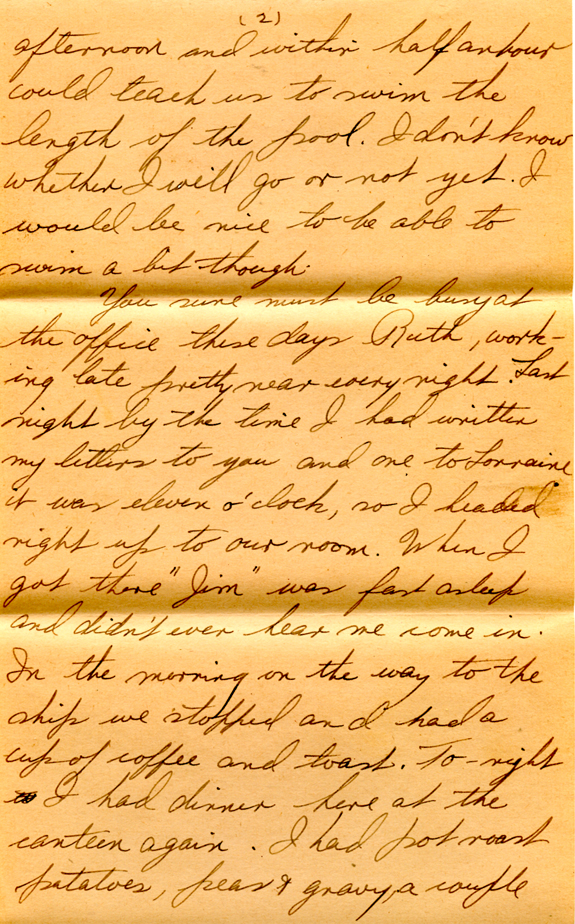 (2)
afternoon and within half an hour
could teach us to swim the
length of the pool. I don't know
whether I will go or not yet. I
would be nice to be able to
swim a bit though.
You sure must be busy at
the office these days Ruth, work-
ing late pretty near every night. Last
night by the time I had written
my letters to you and one to Lorraine
it was eleven o'clock, so I headed
right up to our room. When I
got there "Jim" was fast asleep
and didn't even hear me come in.
In the morning on the way to the
ship we stopped and had a
cup of coffee and toast. To-night
I had dinner here at the
canteen again. I had pot roast
potatoes, peas & gravy, a couple